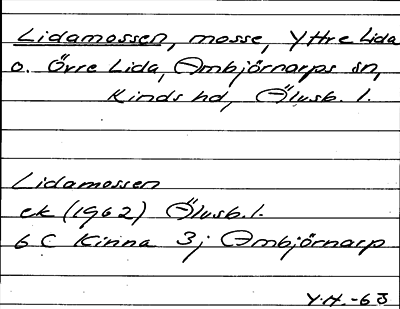 Lidamossen, mosse, Yttre Lida
o. Övre Lida, Ambjörnarps sn,
Kinds hd, Älvsb. l.
Lidamossen
ek (1962) Älvsb. l.
6 C Kinna 3j Ambjörnarp
Y.H. -63